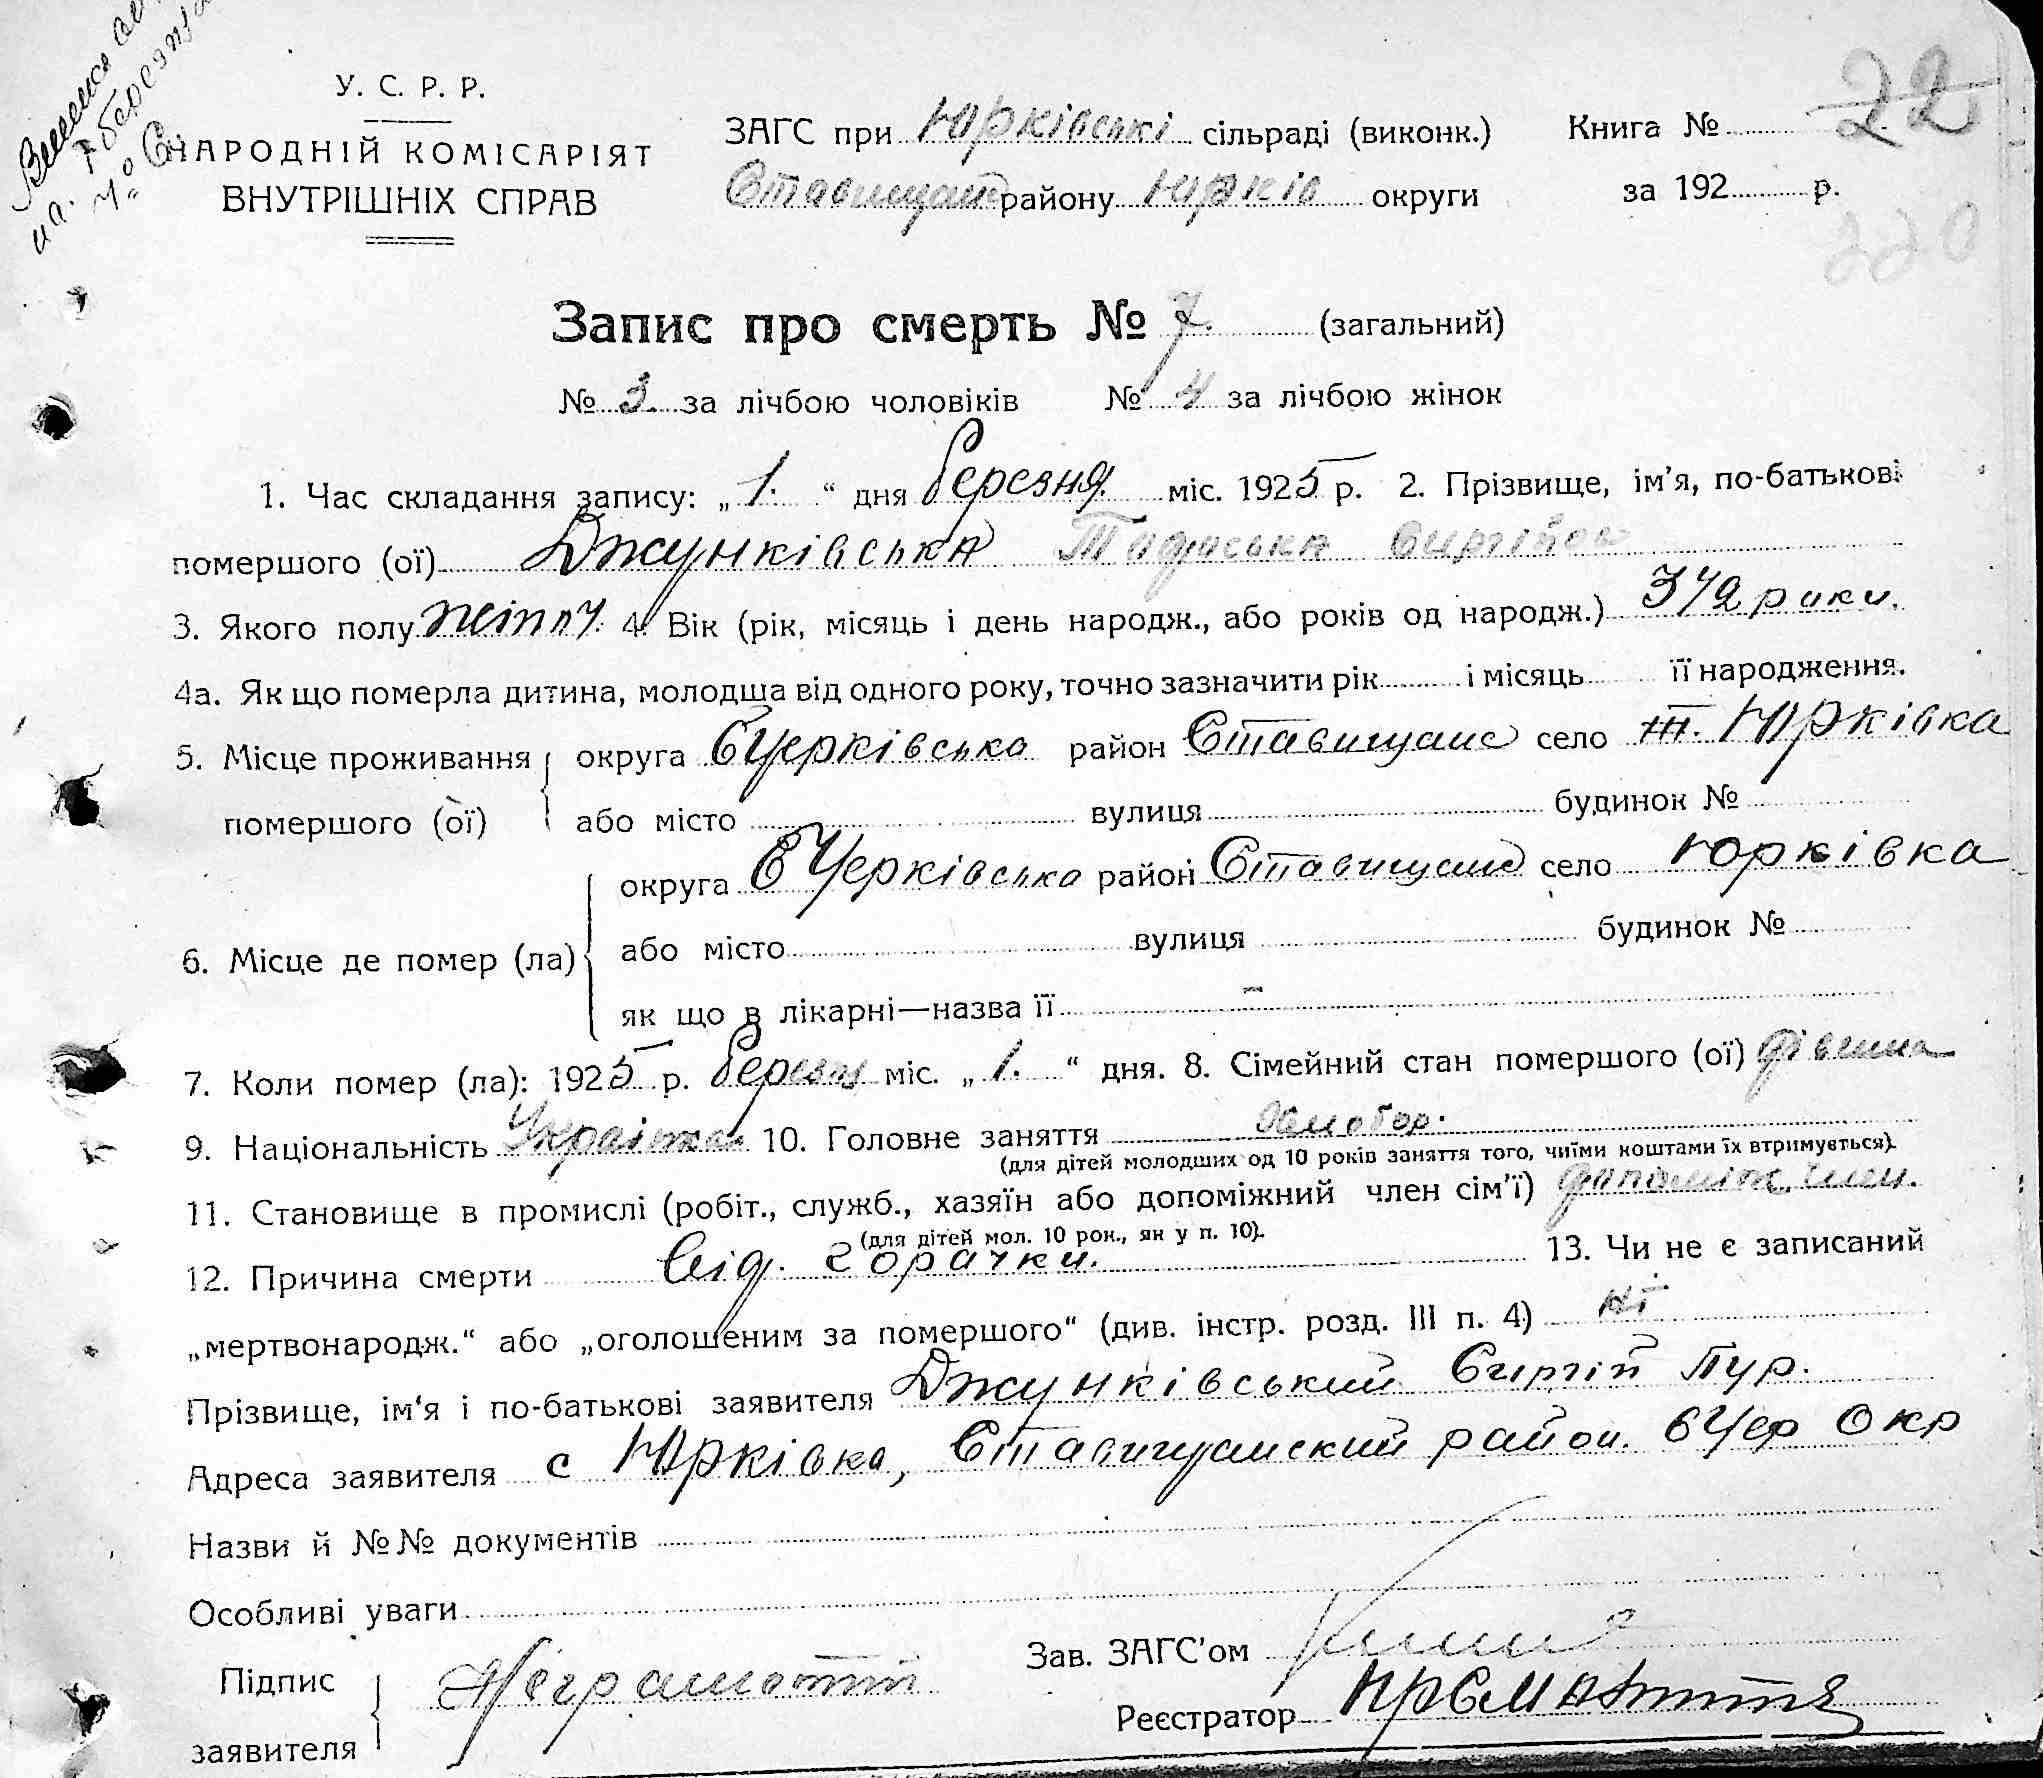 У. С. Р. Р.
НАРОДНІЙ КОМІСАРІЯТ
ВНУТРІШНІХ СПРАВ
ЗАГС при Юрківські сільраді (виконк.) Книга №
22
району Юрків округи за 192 р.
220
Запис про смерть № 7. (загальний)
№ 3. за лічбою чоловіків № 4 за лічбою жінок
1. Час складання запису: „ 1. “ дня березня. міс. 1925 р. 2. Прізвище, ім'я, по-батькові
помершого (ої) Джунківська
3. Якого полу 4. Вік (рік, місяць і день народж., або років од народж.) 3 1/2 роки.
4а. Як що померла дитина, молодша від одного року, точно зазначити рік і місяць її народження.
5. Місце проживання округа БЦерківсько район Ставищанс село Юрківка
помершого (ої) або місто вулиця будинок №
округа БЦерківсько район Ставищанс село Юрківка
6. Місце де помер (ла) або місто вулиця будинок №
як що в лікарні—назва її –
7. Коли помер (ла): 1925 р. міс. „ 1. “ дня. 8. Сімейний стан помершого (ої)
9. Національність 10. Головне заняття Хлібор.
(для дітей молодших од 10 років заняття того, чиїми коштами їх втримується).
11. Становище в промислі (робіт., служб., хазяїн або допоміжний член сім'ї) допоміж. член.
(для дітей мол. 10 рок., як у п. 10).
12. Причина смерти від. горачки. 13. Чи не є записаний
„мертвонародж.“ або „оголошеним за помершого“ (див. інстр. розд. III п. 4) ні
Прізвище, ім'я і по-батькові заявителя Джунківський Сиргій
Адреса заявителя с Юрківка, Ставищанский район. БЦер Окр
Назви й №№ документів
Особливі уваги
Підпис
заявителя
Зав. ЗАГС'ом
Реєстратор